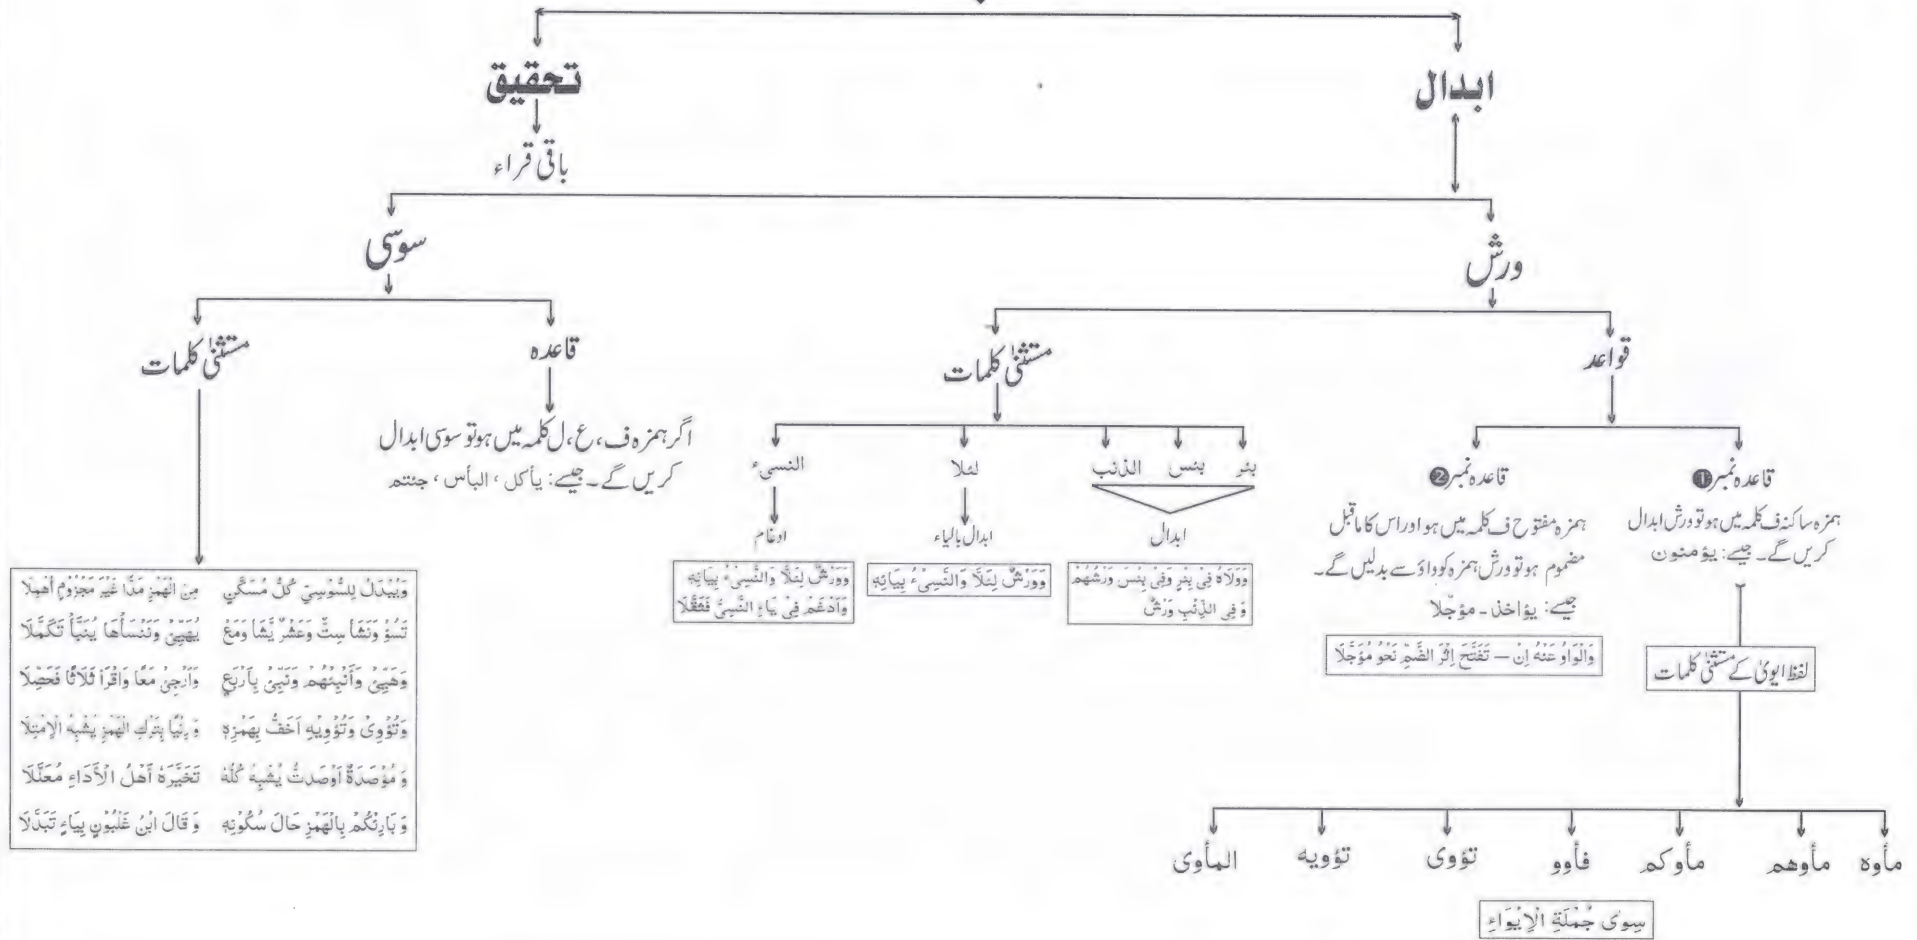 ابدال
تحقیق
باقی قراء
ورش
سوسی
قواعد
مستثنیٰ کلمات
قاعدہ
مستثنیٰ کلمات
قاعدہ نمبر1
ہمزہ ساکنہ ف کلمہ میں ہو تو ورش ابدال
کریں گے۔ جیسے: یؤمنون
لفظ ایویٰ کے مستثنیٰ کلمات
مأوہ
مأوھم
مأوکم
فأوو
تؤوی
تؤویہ
المأوی
سِوٰی جُمْلَةِ الْاِیْوَاءِ
قاعدہ نمبر2
ہمزہ مفتوح ف کلمہ میں ہو اور اس کا ماقبل
مضموم ہو تو ورش ہمزہ کو واؤ سے بدلیں گے۔
جیسے: یؤاخذ ۔ مؤجّلا
وَالْوَاوُ عَنْهُ اِنْ — تَفَتَّحَ اِثْرَ الضَّمِّ نَحْوُ مُؤَجَّلَا
بئر
بئس
الذئب
ابدال
وَوَالَاهُ فِیْ بِئْرٍ وَفِیْ بِئْسَ وَرْشُهُمْ
وَ فِی الذِّئْبِ وَرْشٌ
لئلا
ابدال بالیاء
وَوَرْشٌ لِئَلَّا وَالنَّسِیْءُ بِیَائِهٖ
النسیء
ادغام
وَوَرْشٌ لِئَلَّا وَالنَّسِیْءُ بِیَائِهٖ
وَاَدْغَمَ فِیْ یَاءِ النَّسِیِّ فَثَقَّلَا
اگر ہمزہ ف،ع،ل کلمہ میں ہو تو سوسی ابدال
کریں گے۔ جیسے: یأکل ، البأس ، جئتم
وَیُبْدَلُ لِلسُّوْسِیِّ کُلُّ مُسَکَّنٍ مِنَ الْهَمْزِ مَدًّا غَیْرَ مَجْزُوْمٍ اُهْمِلَا
تَسُؤْ وَنَشَاْ سِتٌّ وَعَشْرٌ یَّشَا وَمَعْ یُهَیِّئْ وَنَنْسَأْهَا یُنَبَّأْ تَکَمَّلَا
وَهَیِّئْ وَأَنْبِئْهُمْ وَنَبِّئْ بِاَرْبَعٍ وَاَرْجِئْ مَعًا وَاقْرَاْ ثَلَاثًا فَحَصِّلَا
وَتُؤْوِیْ وَتُؤْوِیْهِ اَخَفُّ بِهَمْزِهٖ وَ رِئْیًا بِتَرْکِ الْهَمْزِ یُشْبِهُ الْاِمْتِلَا
وَ مُؤْصَدَةٌ اَوْصَدتُّ یُشْبِهُ کُلُّهٗ تَخَیَّرَهٗ أَهْلُ الْأَدَاءِ مُعَلَّلَا
وَ بَارِئْکُمْ بِالْهَمْزِ حَالَ سُکُوْنِهٖ وَ قَالَ ابْنُ غَلْبُوْنٍ بِیَاءٍ تَبَدَّلَا